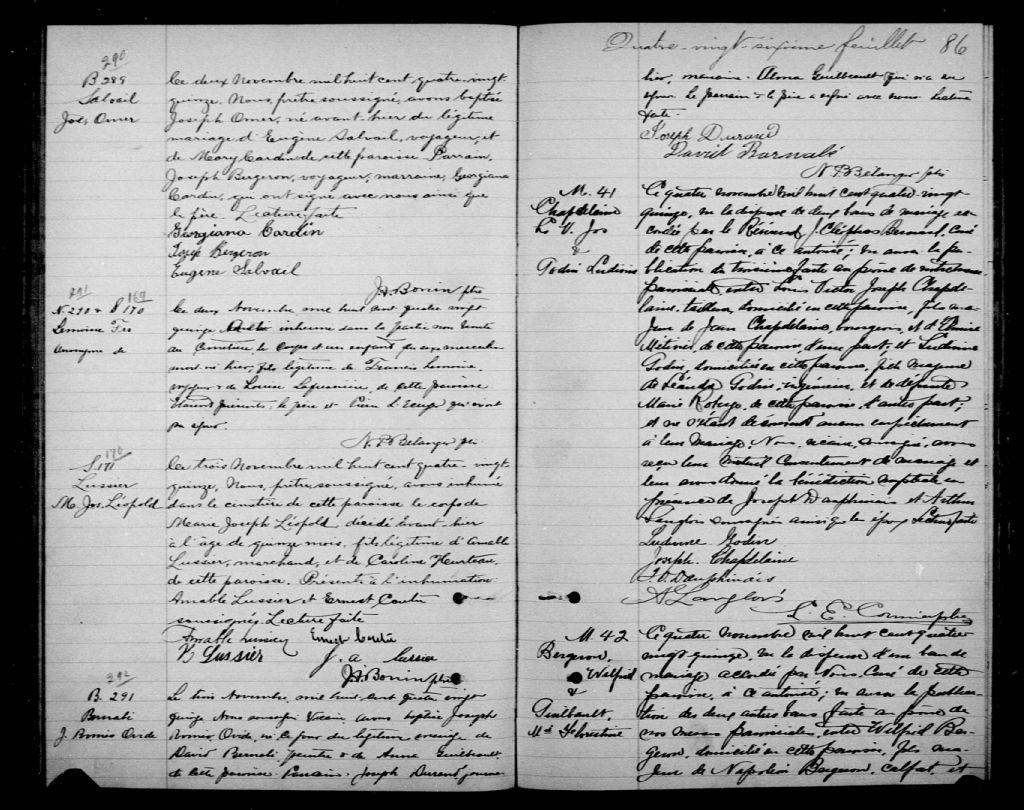 290
B. 289
Salvail
Jos. Omer
Ce deux Novembre mil huit cent quatre-vingt-
quinze, Nous, prêtre soussigné, avons baptisé
Joseph Omer, né avant hier de légitime
mariage d'Eugène Salvail, voyageur, et
de Mary Cardin de cette paroisse Parrain,
Joseph Bergeron, voyageur, marraine, Georgiana
Cardin, qui ont signé avec nous ainsi que
le père. Lecture faite
Georgiana Cardin
Joseph Bergeron
Eugène Salvail
J.A. Bonin ptre
291
169
N. 290 & S 170
Lemoine Frs
Anonyme de
Ce deux Novembre mil huit cent quatre vingt
quinze inhumé dans la partie non bénite
du cimetière le corps d'un enfant
mort né hier, fils légitime de Francis Lemoine,
voyageur & de Louise de cette paroisse
Etaient présents, le père et qui n'ont
pu signer.
N. P. Bélanger ptr
170
S. 171
Lussier
M. Jos. Léopold
Ce trois Novembre mil huit cent quatre-vingt-
quinze, Nous, prêtre soussigné, avons inhumé
dans le cimetière de cette paroisse le corps de
Marie Joseph Léopold, décédé avant-hier
à l'âge de quinze mois, fils légitime d'Amable
Lussier, marchand, et de Caroline Hurteau,
de cette paroisse. Présents à l'inhumation
Amable Lussier et Ernest Coutu
soussignés. Lecture faite
Amable Lussier Ernest Coutu
V Lussier J. A Lussier
J.A. Bonin ptre
292
B. 291
Bernabé
J. Roméo Ovide
Le trois Novembre mil huit cent quatre vingt
quinze Nous soussigné Vicaire avons baptisé Joseph
Roméo Ovide, né ce jour du légitime mariage de
David Bernabé peintre & de Anna Guilbeault
de cette paroisse Parrain Joseph Durand
Quatre-vingt-sixième feuillet 86
marraine Alma Guilbeault qui n'a su
signer Le parrain & le père a signé avec nous Lecture
faite.
Joseph Durand
David Barnabé
N P Bélanger ptr
M. 41
Chapdelaine
L. V. Jos
&
Godin Ludivine
Ce quatre novembre mil huit cent quatre vingt-
quinze, vu la dispense de deux bans de mariage ac-
cordée par le Révérend J. Cléophas Bernard, curé
de cette paroisse, à ce autorisé; vu aussi la pu-
blication du troisième faite au prône de notre messe
paroissiale, entre Louis Victor Joseph Chapde-
laine, tailleur, domicilié en cette paroisse, fils ma-
jeur de Jean Chapdelaine, bourgeois, et d'
Métivier, de cette paroisse, d'une part, et Ludivine
Godin, domiciliée en cette paroisse, fille majeure
de Léandre Godin, ingénieur, et de défunte
Marie de cette paroisse, d'autre part;
et ne s'étant découvert aucun empêchement
à leur mariage, Nous, vicaire, soussigné, avons
reçu leur mutuel consentement de mariage et
leur avons donné la bénédiction nuptiale en
présence de Joseph Dauphinais et Arthur
Langlois soussignés ainsi que les époux Lecture faite
Ludivine Godin
Joseph Chapdelaine
J. O. Dauphinais
A Langlois
L. E. Cormier ptre
M. 42
Bergeron,
Wilfrid
&
Guilbault,
Md. Silvestrine
Ce quatre novembre mil huit cent quatre
vingt-quinze, vu la dispense d'un ban de
mariage accordée par Nous, Curé de cette
paroisse, à ce autorisé; vu aussi la publica-
tion des deux autres bans faite au prône de
nos messes paroissiales, entre Wilfrid Ber-
geron, domicilié en cette paroisse, fils ma-
jeur de Napoléon Bergeron, calfat, et